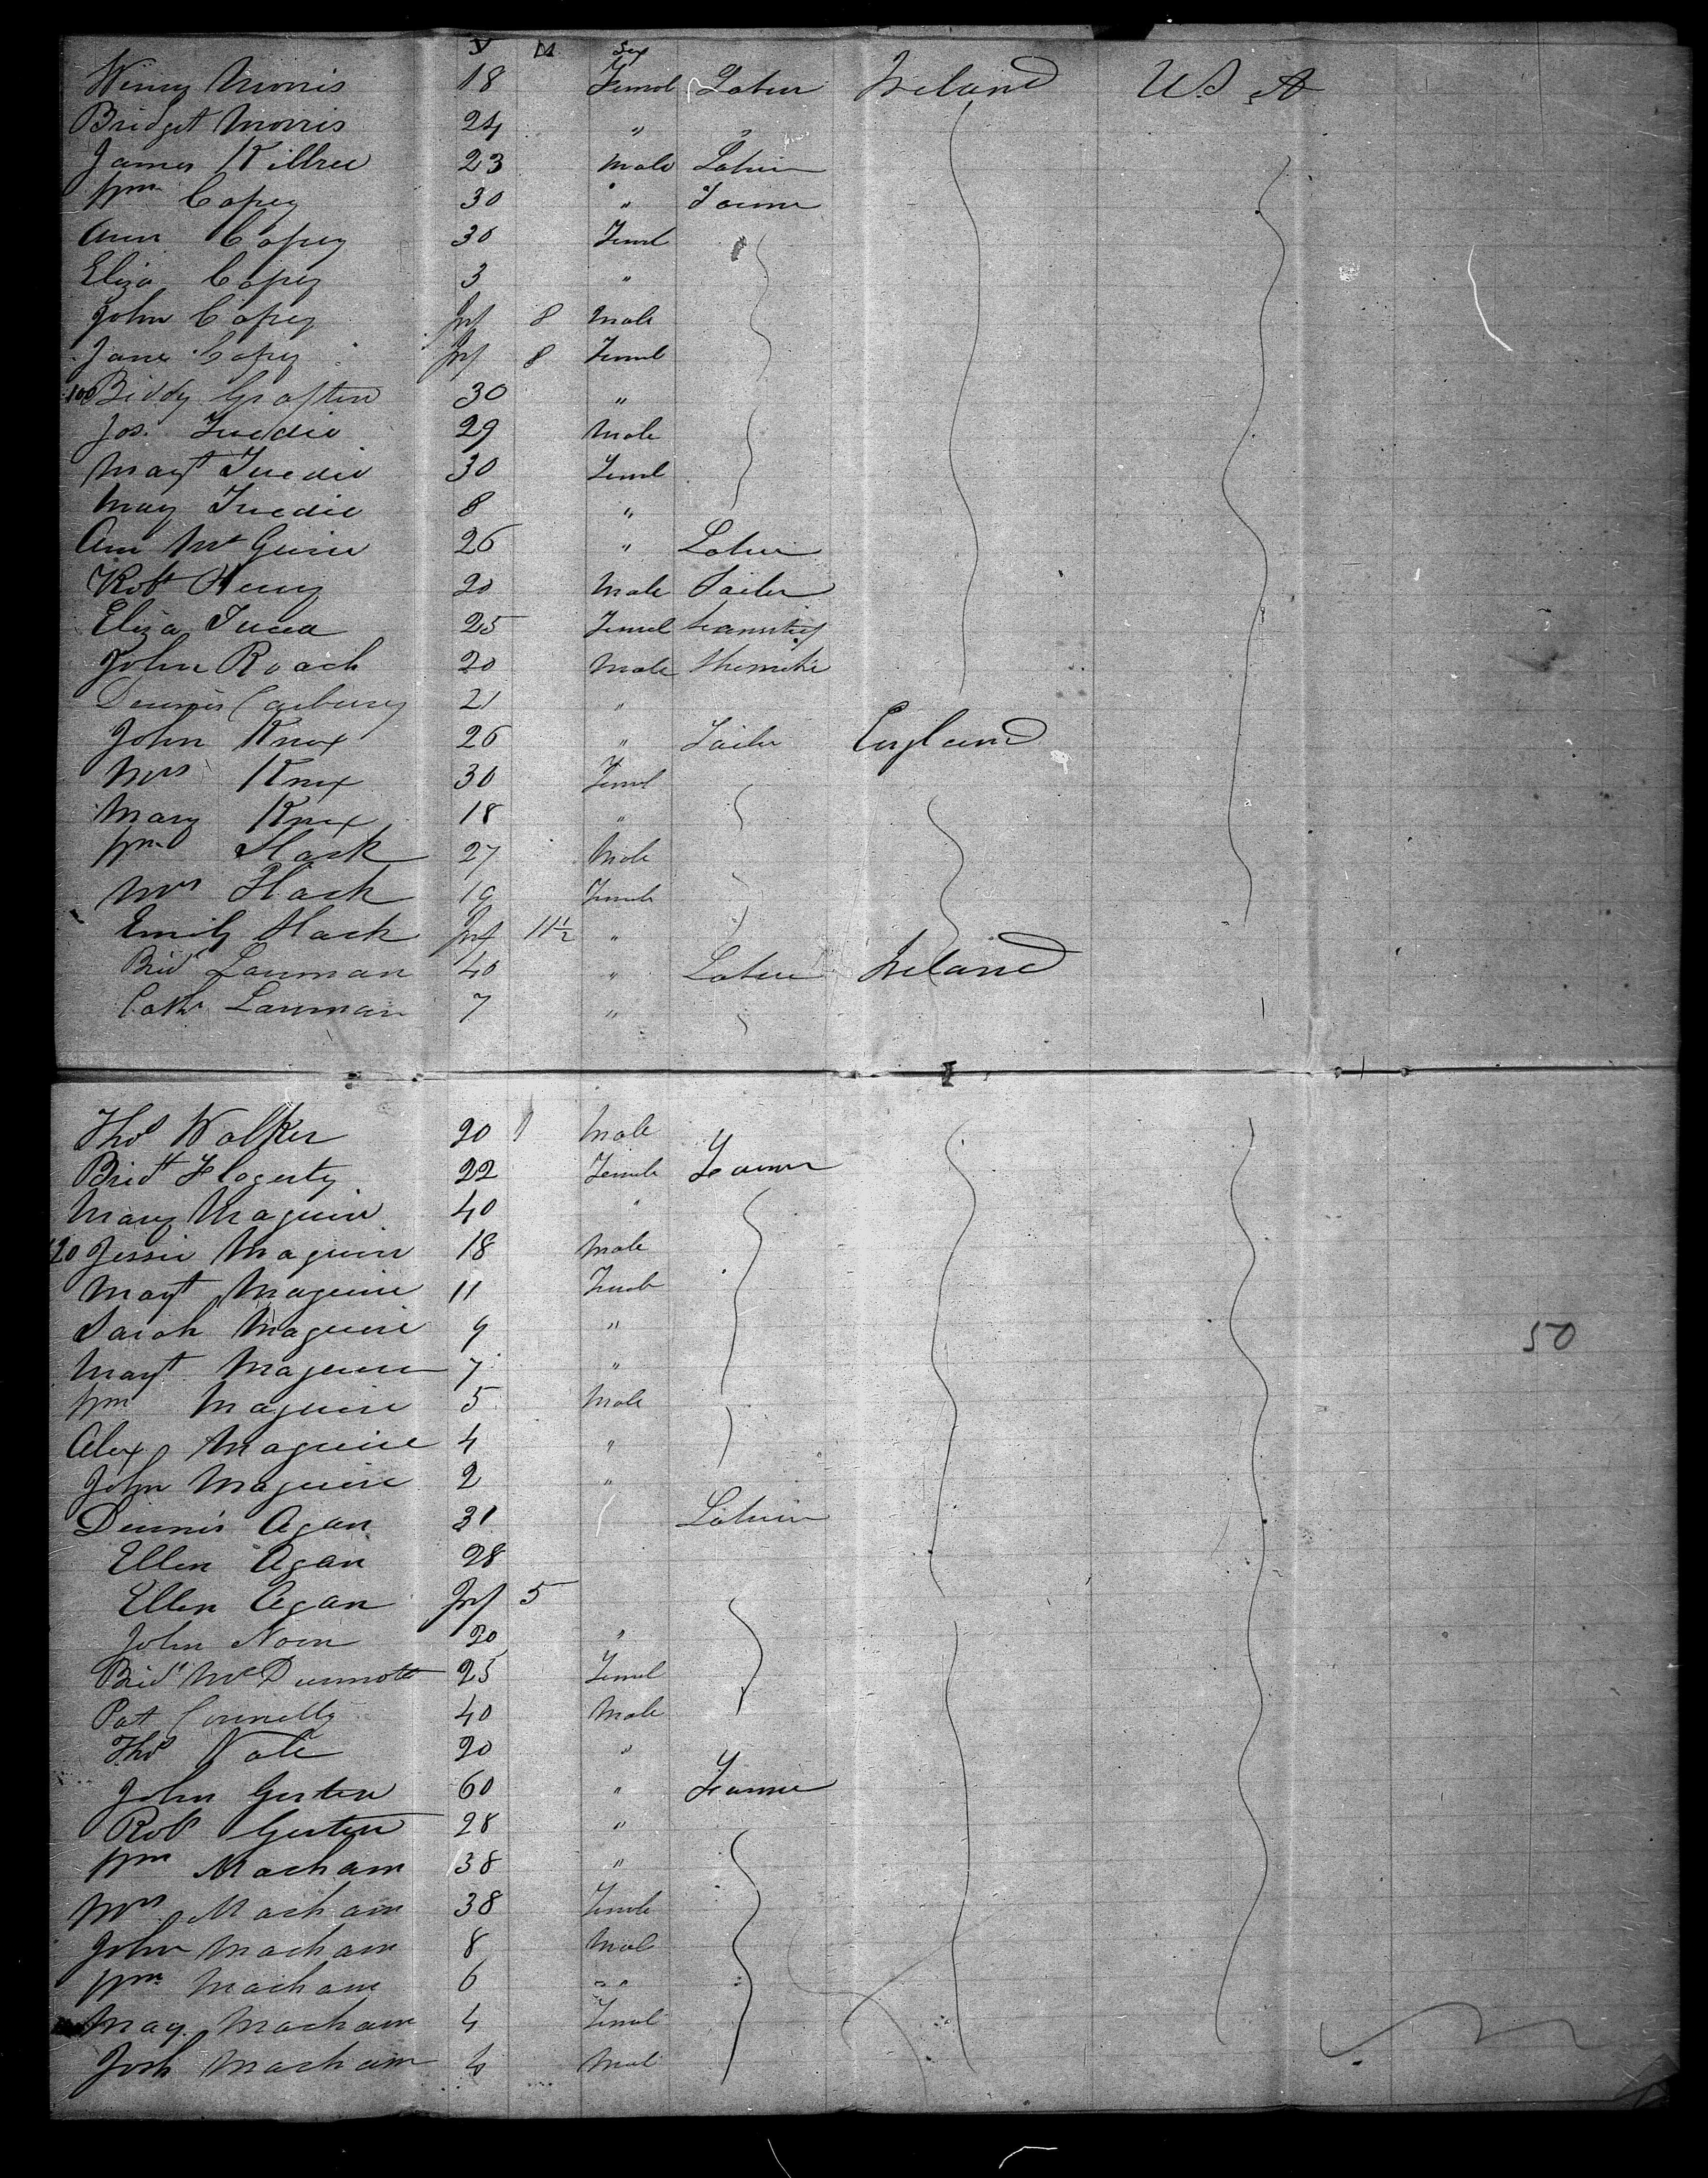 Y M Sex
Winny Morris 18 Femal Labor Ireland U S A
Bridget Morris 24 "
James Kilbree 23 Male Labor
Wm Copey 30 " Farmer
Ann Copey 30 Feml
Eliza Copey 3 "
John Copey Inf 8 Male
Jane Copey Inf 8 Feml
100 Biddy Graften 30 "
Jos. Tuedie 29 Male
Magt Tuedie 30 Feml
May Tuedie 8 "
Ann McGuire 26 " Labor
Robt Henry 20 Male Sailor
Eliza 25 Femel
John Roach 20 Male
Dennis 21 "
John Knox 26 " Tailor England
Mrs Knox 30 Feml
Mary Knox 18 "
Wm Slack 27 Male
Mrs Slack 19 Female
Emily Slack Inf 11½ "
Bridt Lanman 40 " Labor Ireland
Cath Lanman 7 "
Thos Walker 20 Male
Bridt Flogerty 22 Female Farmer
Mary Maguire 40 "
120 Jessie Maguire 18 Male
Magt Maguire 11 Female
Sarah Maguire 9 "
Magt Maguire 7 " 50
Wm Maguire 5 Male
Alex Maguire 4 "
John Maguire 2 "
Dennis Agan 31 Labor
Ellen Agan 28
Ellen Agan Inf 5
John Noon 20 "
Bridt McDermott 25 Femel
Pat Connelly 40 Male
Thos 20 "
John Gerten 60 " Farmer
Robt Gerten 28 "
Wm Macham 38 "
Mrs Macham 38 Female
John Macham 8 Male
Wm Macham 6 "
May Macham 4 Femel
Josh Macham 4 Mal